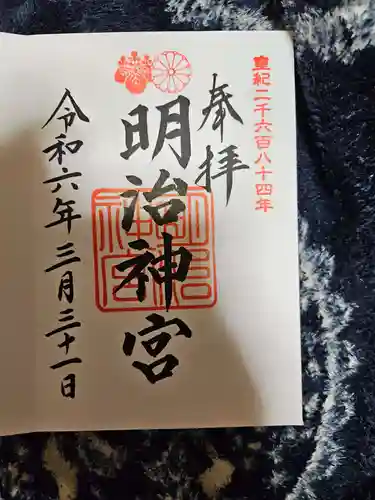 皇紀二千六百八十四年
奉拝
明治神宮
令和六年三月三十一日
明治神宮